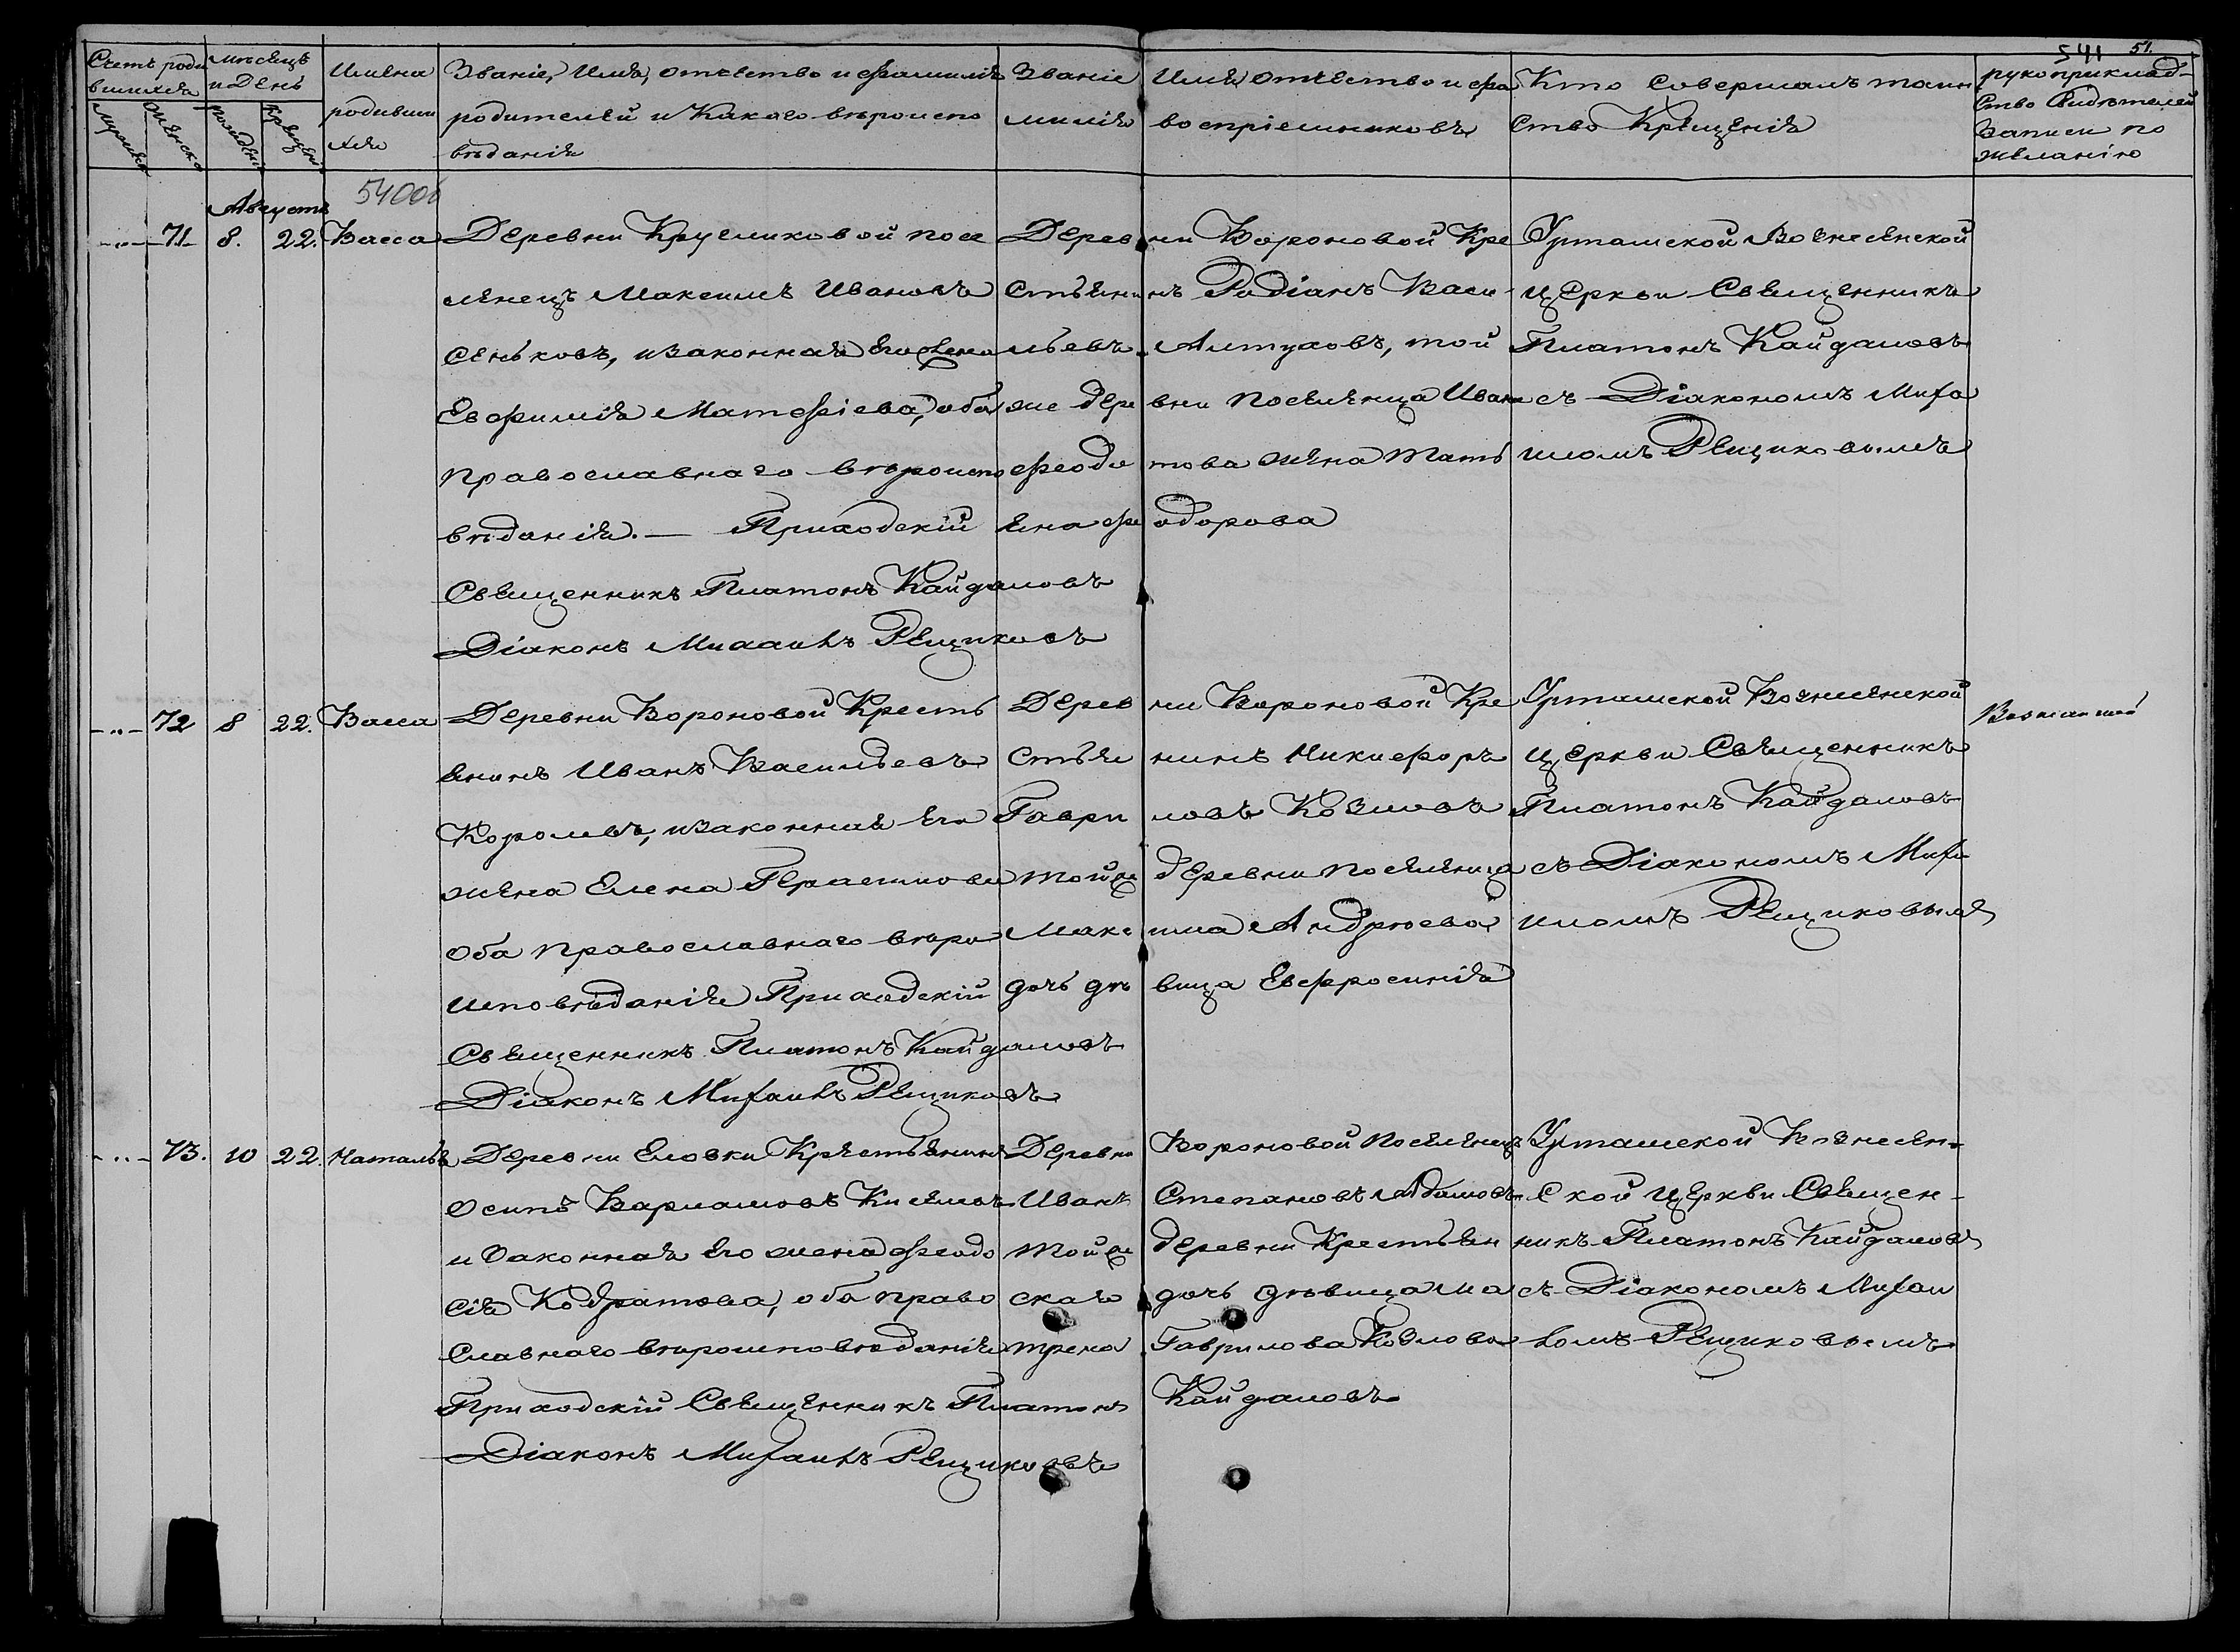 541 51.
Счетъ роди
вшихся
Мужеска
Женска
Мѣсяцъ
и День
рожденія
крещенія
Имена
родивши
хся
Званіе, Имя, отчество и фамилія
родителей и какого вѣроиспо
вѣданія
Званіе Имя отчество и фа
милія воспріемниковъ
Кто совершалъ таин
ство Крещенія
рукоприклад-
ство Свидѣтелей
записи по
желанію
54006
Августъ
-"- 71 8. 22. Васса
Деревни Кругликовой посе
ленецъ Максимъ Ивановъ
Сеньковъ, и законная его жена
Евфимія Матфіева, оба
православнаго вѣроиспо
вѣданія.— Приходскій
Священникъ Платонъ Кайдаловъ
Діаконъ Михаилъ Рещиковъ
Деревни Вороновой Кре
стьянинъ Радіанъ Васи-
льевъ Алтуховъ, той
же деревни поселенца Ивана
Феодотова жена Тать
яна Феодорова
Урташской Вознесенской
церкви Священникъ
Платонъ Кайдаловъ
съ Діакономъ Миха
иломъ Рещиковымъ
-"- 72 8 22. Васса
Деревни Вороновой Кресть
янинъ Иванъ Васильевъ
Королевъ, и законная его
жена Елена Герасимова
оба православнаго вѣро
исповѣданія Приходскій
Священникъ Платонъ Кайдаловъ
Діаконъ Михаилъ Рещиковъ
Деревни Вороновой Кре
стьянинъ Никифоръ
Гавриловъ Козловъ
той же деревни поселенца
Максима Андреева
дочь дѣвица Евфросинія
Урташской Вознесенской
церкви Священникъ
Платонъ Кайдаловъ
съ Діакономъ Миха
иломъ Рещиковымъ
-"- 73. 10 22. Наталья
Деревни Еловки Крестьянинъ
Осипъ Варламовъ Киселевъ
и законная его жена Феодо
сія Кодратова, оба право
славнаго вѣроисповѣданія
Приходскій Священникъ Платонъ Кайдаловъ
Діаконъ Михаилъ Рещиковъ
Деревни Вороновой Поселенецъ
Иванъ Степановъ Адамовъ
той же деревни Крестьян
скаго дочь дѣвица Ма
трена Гаврилова Козлова
Урташской Вознесен-
ской церкви Священ-
никъ Платонъ Кайдаловъ
съ Діакономъ Михаи
ломъ Рещиковымъ